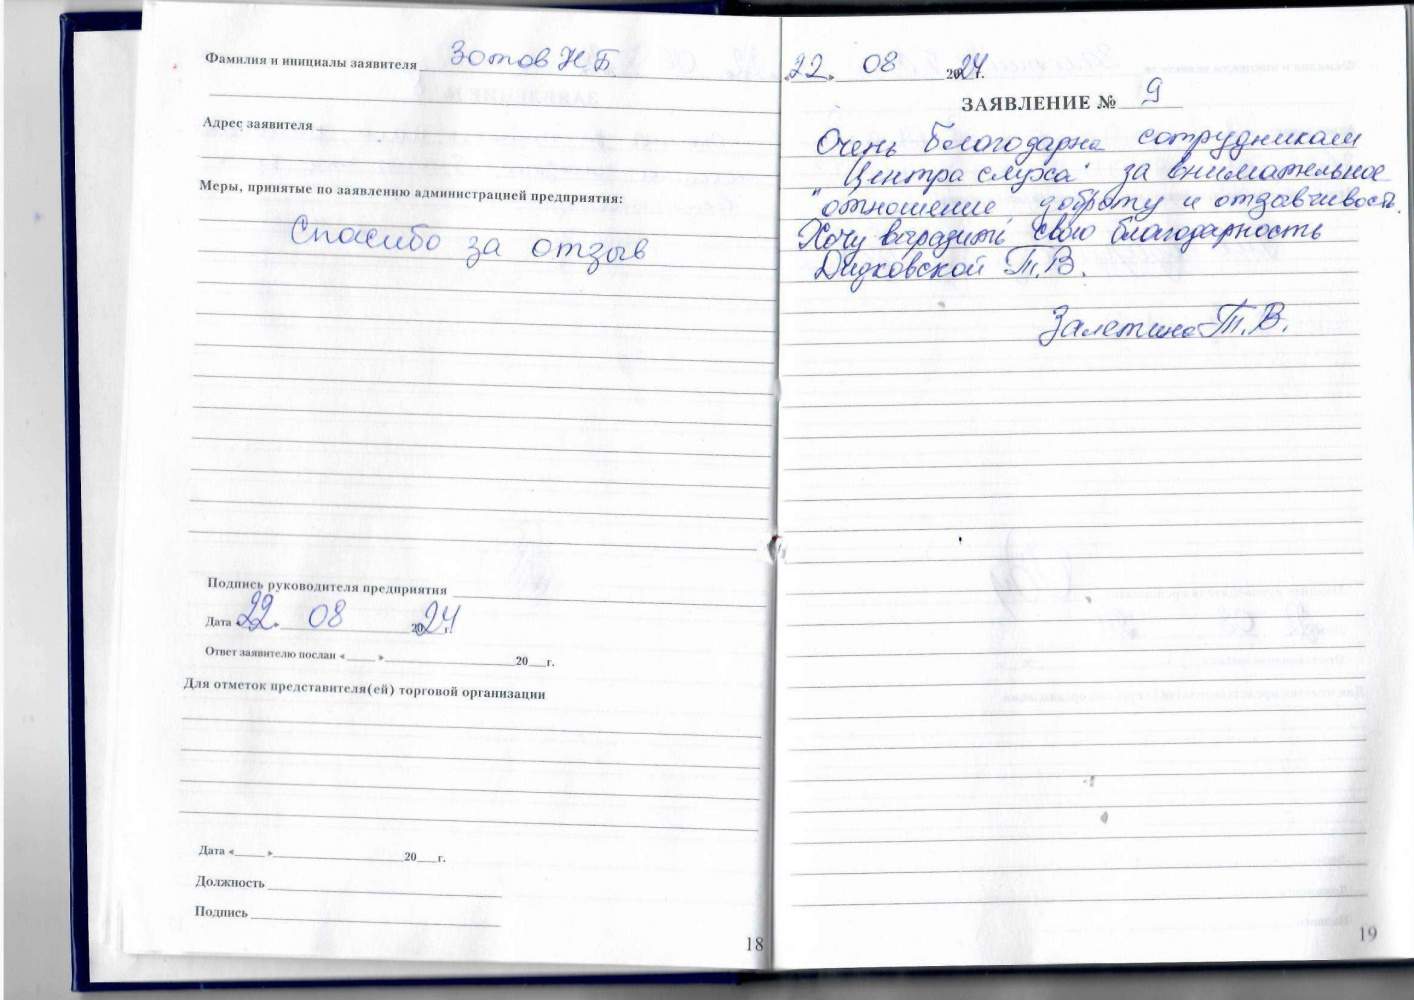 Фамилия и инициалы заявителя Зотов Н Б
Адрес заявителя
Меры, принятые по заявлению администрацией предприятия:
Спасибо за отзыв
Подпись руководителя предприятия
Дата « 22 » 08 2024 г.
Ответ заявителю послан « » 20 г.
Для отметок представителя(ей) торговой организации
Дата « » 20 г.
Должность
Подпись
18
22. 08 2024 г.
ЗАЯВЛЕНИЕ № 9
Очень благодарна сотрудникам
"Центра слуха" за внимательное
отношение, доброту и отзавчивость.
Хочу выразить свою благодарность
Дидковской Т.В.
Залетина Т.В.
19